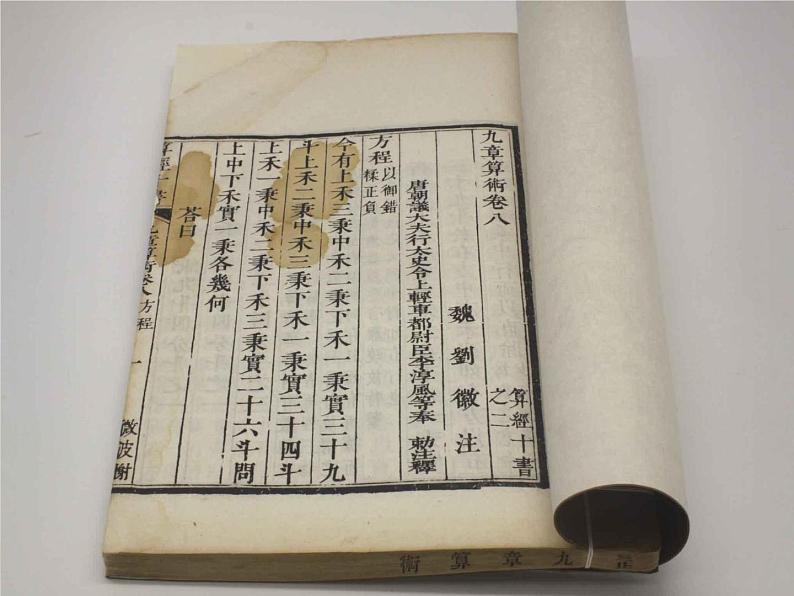 九章算術卷八
算經十書之二
魏劉徽注
唐朝議大夫行太史令上輕車都尉臣李淳風等奉 勅注釋
方程以御錯糅正負
今有上禾三秉中禾二秉下禾一秉實三十九
斗上禾二秉中禾三秉下禾一秉實三十四斗
上禾一秉中禾二秉下禾三秉實二十六斗問
上中下禾實一秉各幾何
荅曰
九章算術卷八 方程 一 微波榭
九章算術